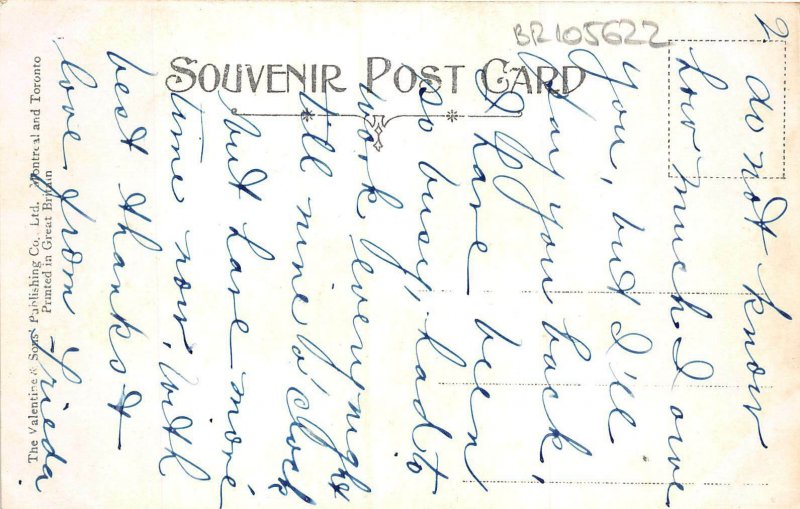 BR105622
SOUVENIR POST CARD
The Valentine & Sons' Publishing Co., Ltd. Montreal and Toronto
Printed in Great Britain
2
do not know
how much I owe
you, but I'll
pay you back,
I have been
so busy, had to
work every night
till nine o'clock
but have more
time now, with
best thanks &
love from Frieda